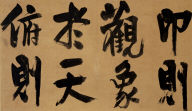 仰則
觀象
於天
俯則